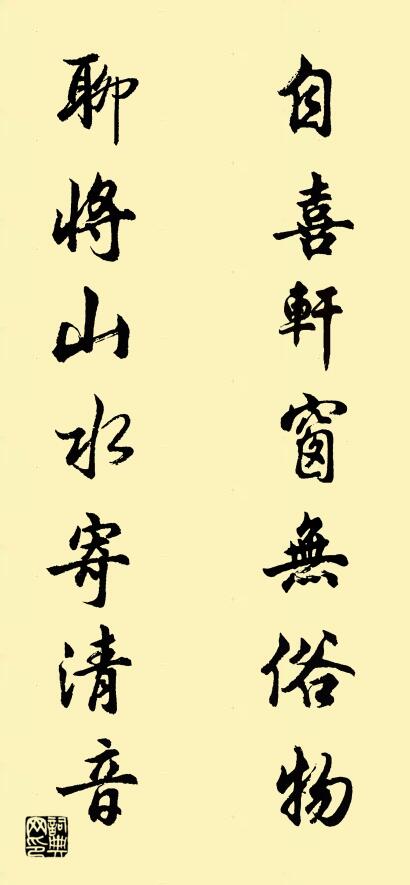 自喜軒窗無俗物
聊將山水寄清音
詞典網印